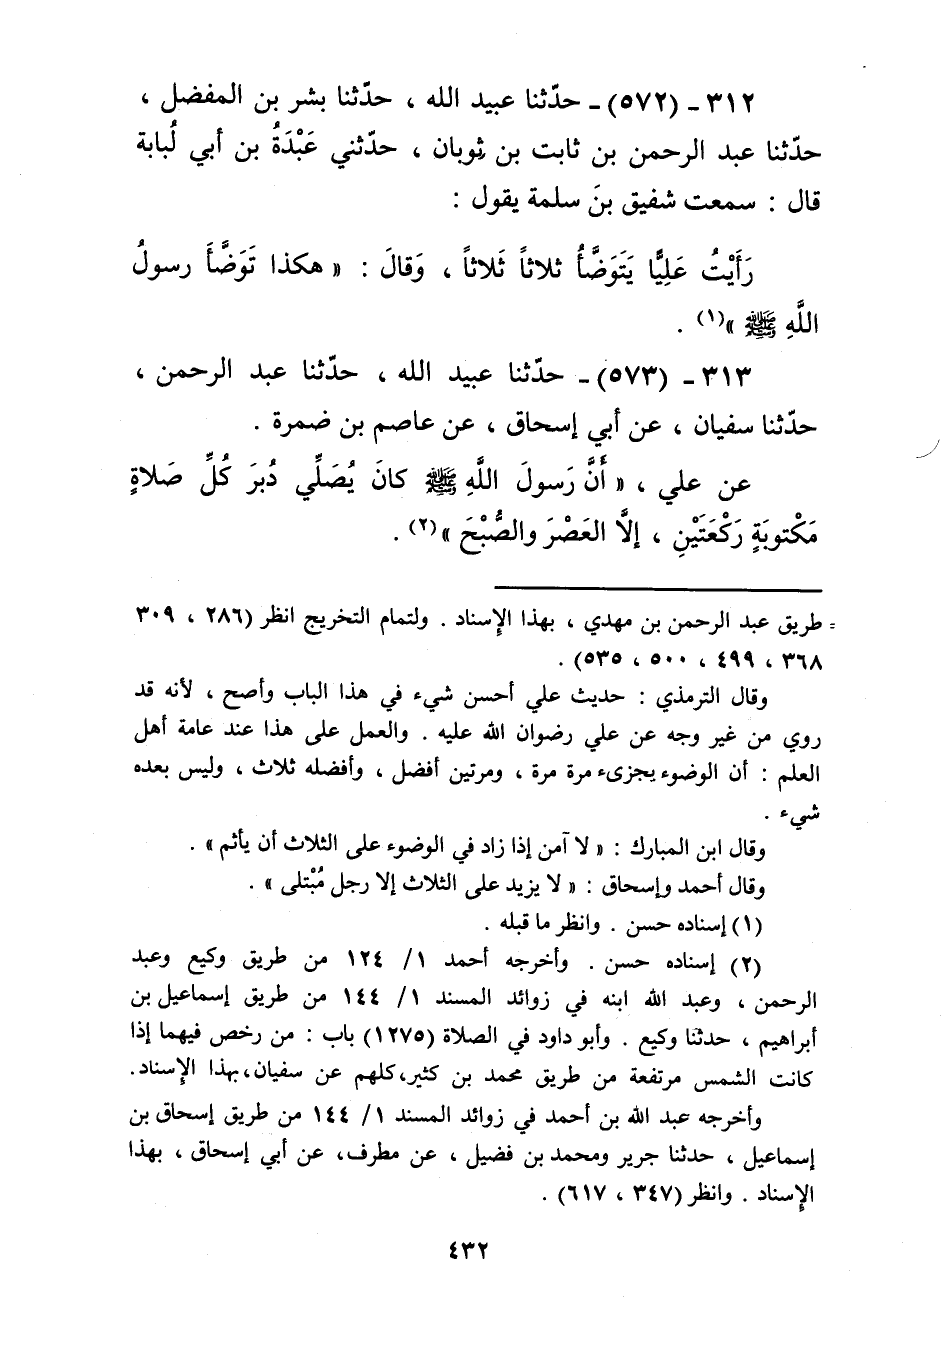 ٣١٢ - (٥٧٢) - حدّثنا عبيد الله ، حدّثنا بشر بن المفضل ،
حدّثنا عبد الرحمن بن ثابت بن ثوبان ، حدّثني عَبْدَةُ بن أبي لُبابة
قال : سمعت شفيق بنَ سلمة يقول :
رَأَيْتُ عَلِيًّا يَتَوَضَّأُ ثَلاثاً ثَلاثاً ، وَقالَ : « هكذا تَوَضَّأَ رسولُ
اللَّهِ ﷺ »(١) .
٣١٣ - (٥٧٣) - حدّثنا عبيد الله ، حدّثنا عبد الرحمن ،
حدّثنا سفيان ، عن أبي إسحاق ، عن عاصم بن ضمرة .
عن علي ، « أَنَّ رَسولَ اللَّهِ ﷺ كانَ يُصَلِّي دُبرَ كُلِّ صَلاةٍ
مَكْتوبَةٍ رَكْعَتَيْنِ ، إلَّا العَصْرَ والصُّبْحَ »(٢) .
= طريق عبد الرحمن بن مهدي ، بهذا الإسناد . ولتمام التخريج انظر (٢٨٦ ، ٣٠٩
٣٦٨ ، ٤٩٩ ، ٥٠٠ ، ٥٣٥) .
وقال الترمذي : حديث علي أحسن شيء في هذا الباب وأصح ، لأنه قد
روي من غير وجه عن علي رضوان الله عليه . والعمل على هذا عند عامة أهل
العلم : أن الوضوء يجزىء مرة مرة ، ومرتين أفضل ، وأفضله ثلاث ، وليس بعده
شيء .
وقال ابن المبارك : « لا آمن إذا زاد في الوضوء على الثلاث أن يأثم » .
وقال أحمد وإسحاق : « لا يزيد على الثلاث إلا رجل مُبْتلى » .
(١) إسناده حسن . وانظر ما قبله .
(٢) إسناده حسن . وأخرجه أحمد ١/ ١٢٤ من طريق وكيع وعبد
الرحمن ، وعبد الله ابنه في زوائد المسند ١/ ١٤٤ من طريق إسماعيل بن
أبراهيم ، حدثنا وكيع . وأبو داود في الصلاة (١٢٧٥) باب : من رخص فيهما إذا
كانت الشمس مرتفعة من طريق محمد بن كثير،كلهم عن سفيان،بهذا الإسناد.
وأخرجه عبد الله بن أحمد في زوائد المسند ١/ ١٤٤ من طريق إسحاق بن
إسماعيل ، حدثنا جرير ومحمد بن فضيل ، عن مطرف، عن أبي إسحاق ، بهذا
الإسناد . وانظر (٣٤٧ ، ٦١٧) .
٤٣٢